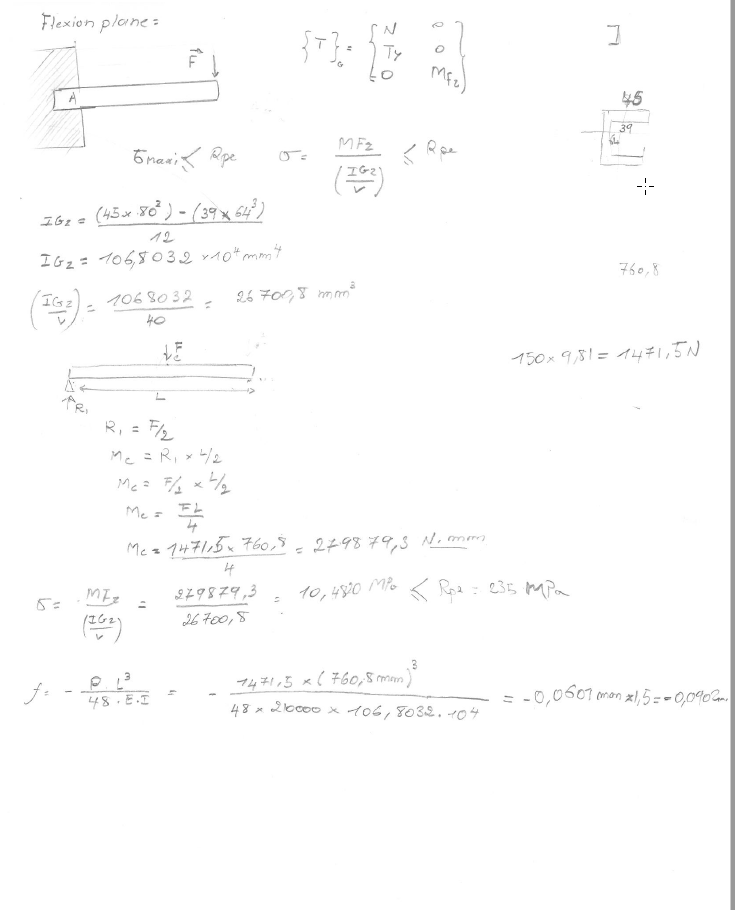 Flexion plane :
{T}G = { N 0
Ty 0
0 Mfz }
]
F
A
45
39
σmaxi ≤ Rpe σ = MFz / (IGz/v) ≤ Rpe
IGz = (45 x 80²) - (39 x 64³) / 12
IGz = 106,8032 x 10⁴ mm⁴
760,8
(IGz/v) = 1068032 / 40 = 26700,8 mm³
150 x 9,81 = 1471,5 N
F
L
R1
R1 = F/2
Mc = R1 x L/2
Mc = F/2 x L/2
Mc = FL/4
Mc = 1471,5 x 760,8 / 4 = 279879,3 N.mm
σ = MFz / (IGz/v) = 279879,3 / 26700,8 = 10,480 MPa ≤ Rpe = 235 MPa
f = - P L³ / 48.E.I = - 1471,5 x (760,8 mm)³ / 48 x 210000 x 106,8032.10⁴ = -0,0601 mm x 1,5 = -0,0902